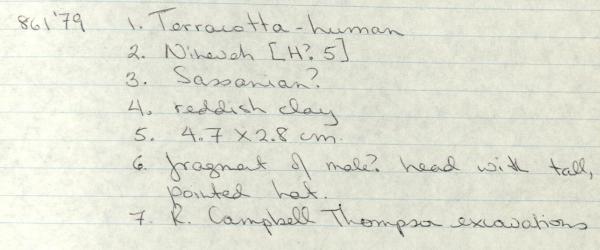 861'79 1. Terracotta-human
2. Nineveh [H? 5]
3. Sassanian?
4. reddish clay
5. 4.7 x 2.8 cm.
6. fragment of male? head with tall,
pointed hat.
7. R. Campbell Thompson excavations